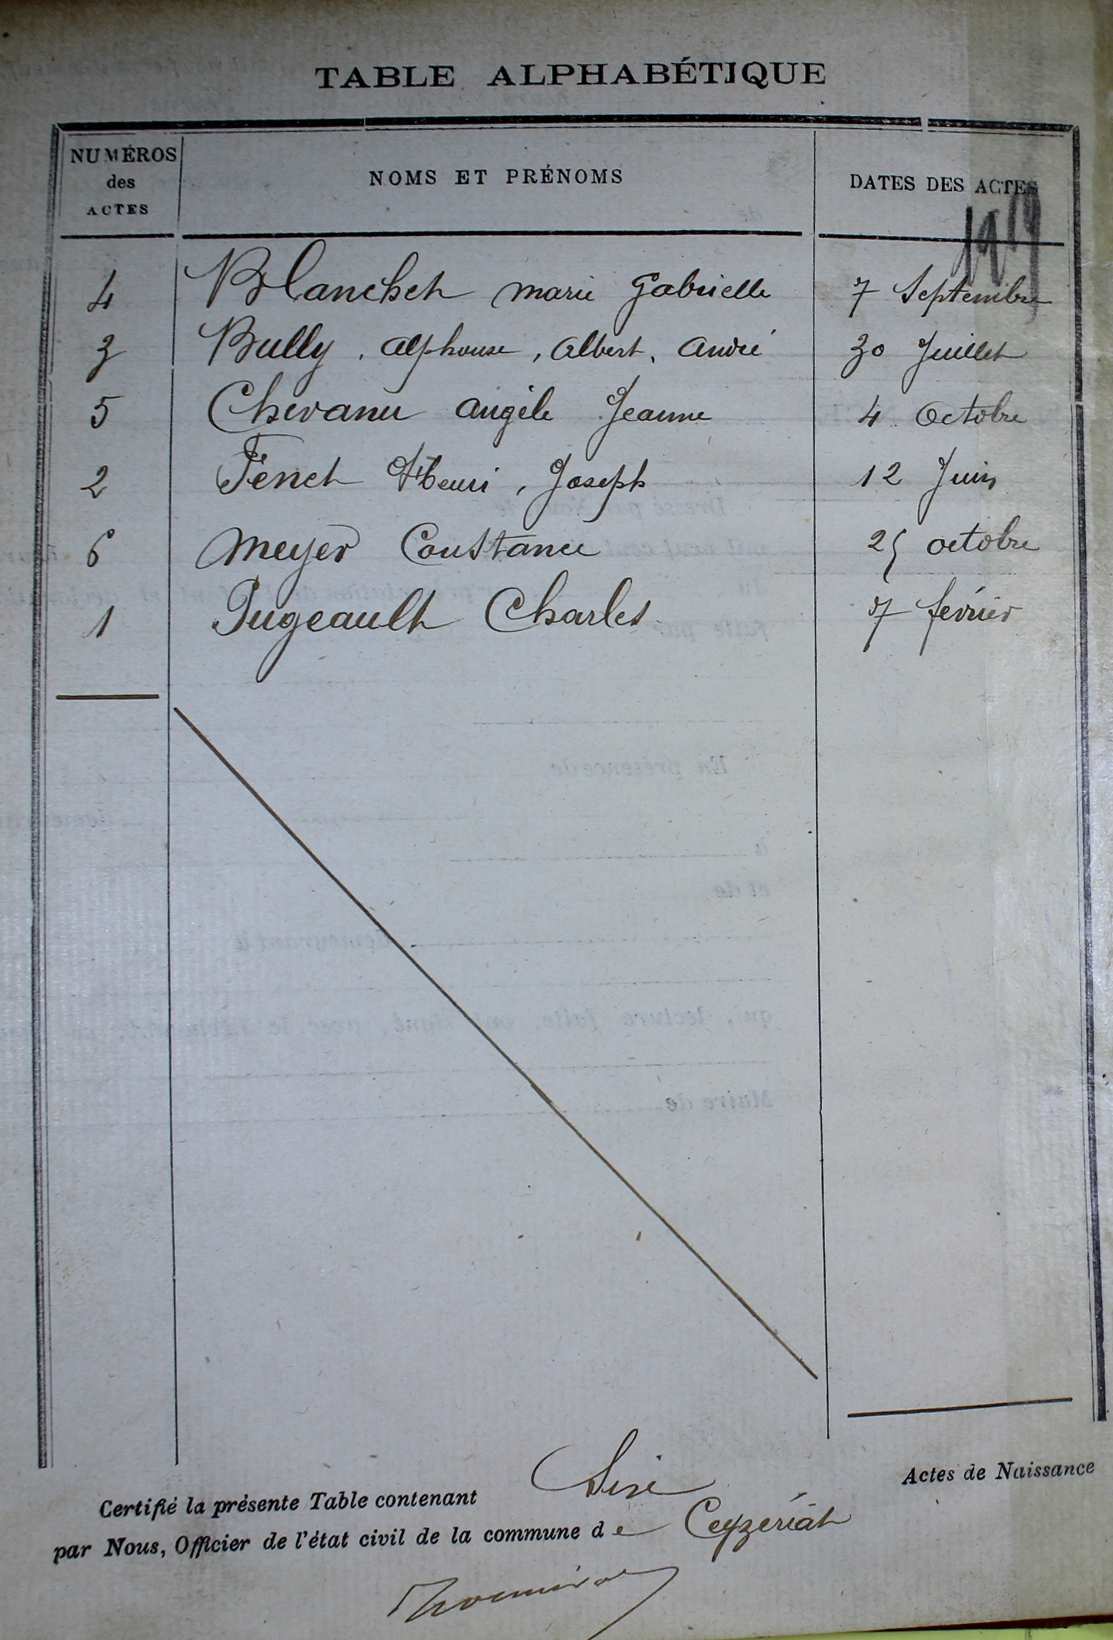 TABLE ALPHABÉTIQUE
NUMÉROS des ACTES NOMS ET PRÉNOMS DATES DES ACTES
1919
4 Blanchet Marie Gabrielle 7 Septembre
3 Bully, Alphonse, Albert, André 30 Juillet
5 Chevanu Angèle Jeanne 4 Octobre
2 Fenet Henri, Joseph 12 Juin
6 Meyer Constance 25 octobre
1 Pugeault Charles 7 février
Certifié la présente Table contenant Sixe Actes de Naissance
par Nous, Officier de l'état civil de la commune de Ceyzériat